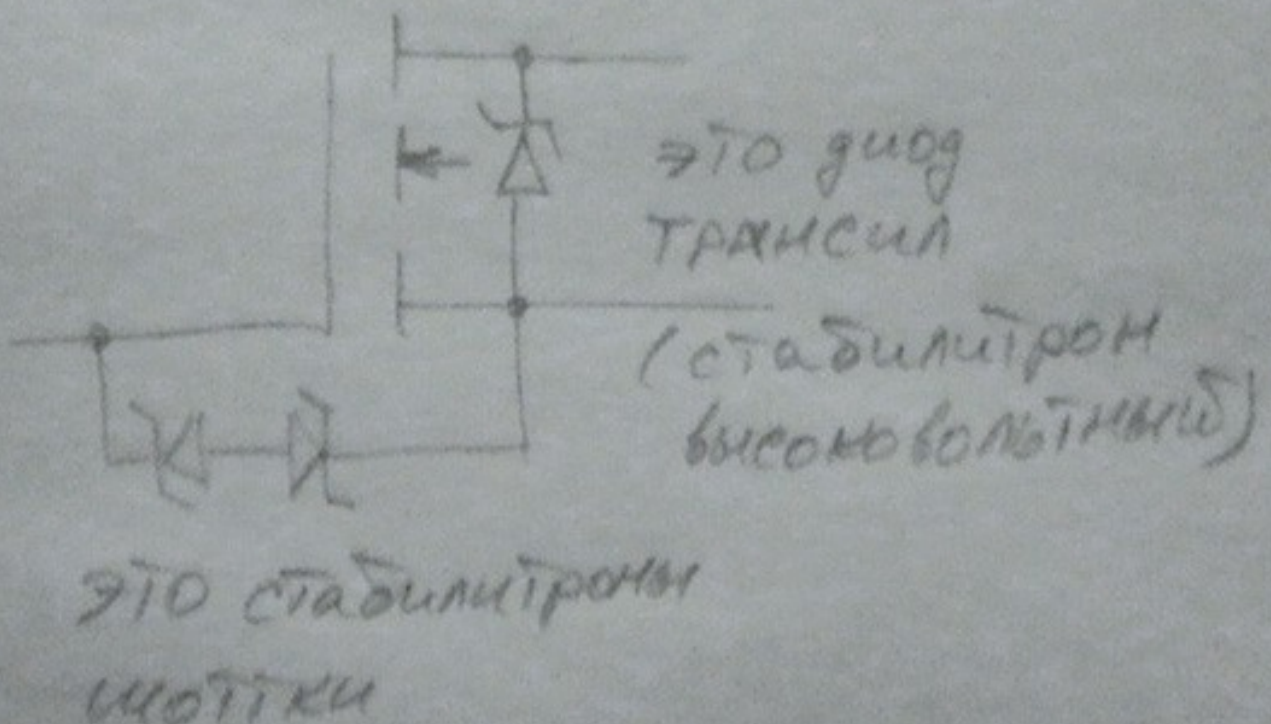 это диод
трансил
(стабилитрон
высоковольтный)
это стабилитроны
шоттки